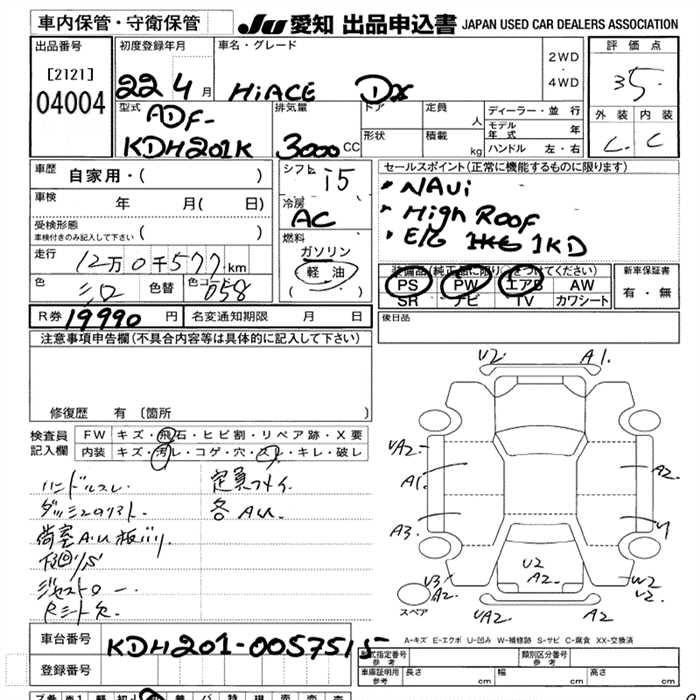 車内保管・守衛保管
JU 愛知 出品申込書 JAPAN USED CAR DEALERS ASSOCIATION
出品番号
[2121]
04004
初度登録年月
22 4月
車名・グレード
HiACE DX
2WD
・
4WD
評価点
3.5
外装 内装
C C
型式
ADF-
KDH201K
排気量
3000CC
ドア
定員
人
形状
積載
kg
ディーラー・並行
モデル年式 年
ハンドル 左・右
車歴
自家用・( )
車検
年 月( 日)
受検形態
車検付きのみ記入して下さい ( )
走行
12万0千577km
色
シロ
色替
色コード
058
シフト
i5
冷房
AC
燃料
ガソリン
軽油
( )
セールスポイント(正常に機能するものに限ります)
・NAVi
・High ROOF
・E/G 1KD
装備品(純正品に限り○をつけてください)
PS PW エアB AW
SR ナビ TV カワシート
新車保証書
有・無
R券 19990円
名変通知期限 月 日
後日品
注意事項申告欄(不具合内容等は具体的に記入して下さい)
修復歴 有 〔箇所 〕
検査員
記入欄
FW キズ・飛石・ヒビ割・リペア跡・X要
内装 キズ・汚レ・コゲ・穴・スレ・キレ・破レ
ハンドルスレ
定員フメイ
各AU.
U2 A1.
UA2
A1.
A3.
A2
U2
A2
U3
A2
UA2
W2
U2
A2
スペア
A-キズ E-エクボ U-凹み W-補修跡 S-サビ C-腐食 XX-交換済
車台番号
KDH201-0057515
登録番号
型式指定番号
参考
類別区分番号
参考
車庫証明用
参考
長さ cm
幅 cm
高さ cm